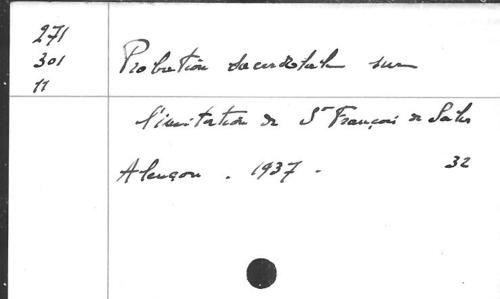 271
301
11
Probation sacerdotale sur
l'imitation de St François de Sales
Alençon . 1937 . 32